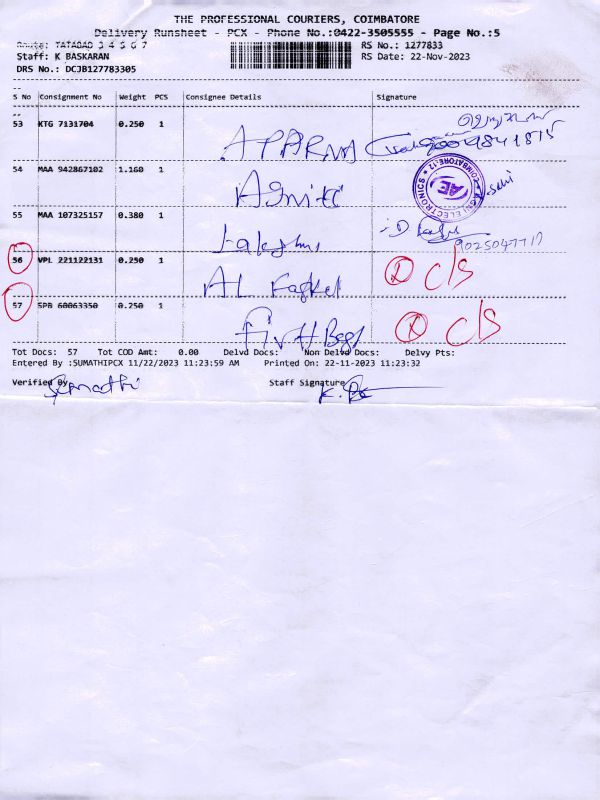 THE PROFESSIONAL COURIERS, COIMBATORE
Delivery Runsheet - PCX - Phone No.:0422-3505555 - Page No.:5
Route: TATABAD 3 4 5 6 7 RS No.: 1277833
Staff: K BASKARAN RS Date: 22-Nov-2023
DRS No.: DCJB127783305
S No Consignment No Weight PCS Consignee Details Signature
53 KTG 7131704 0.250 1 APARNA
54 MAA 942867102 1.160 1 Agni
AGNI ELECTRONICS * COIMBATORE-12 * AE
55 MAA 107325157 0.380 1 Lakshmi
9025047717
56 VPL 221122131 0.250 1 AL R C/S
57 SPB 60063350 0.250 1 R C/S
Tot Docs: 57 Tot COD Amt: 0.00 Delvd Docs: Non Delvd Docs: Delvy Pts:
Entered By :SUMATHIPCX 11/22/2023 11:23:59 AM Printed On: 22-11-2023 11:23:32
Verified By Sumathi Staff Signature